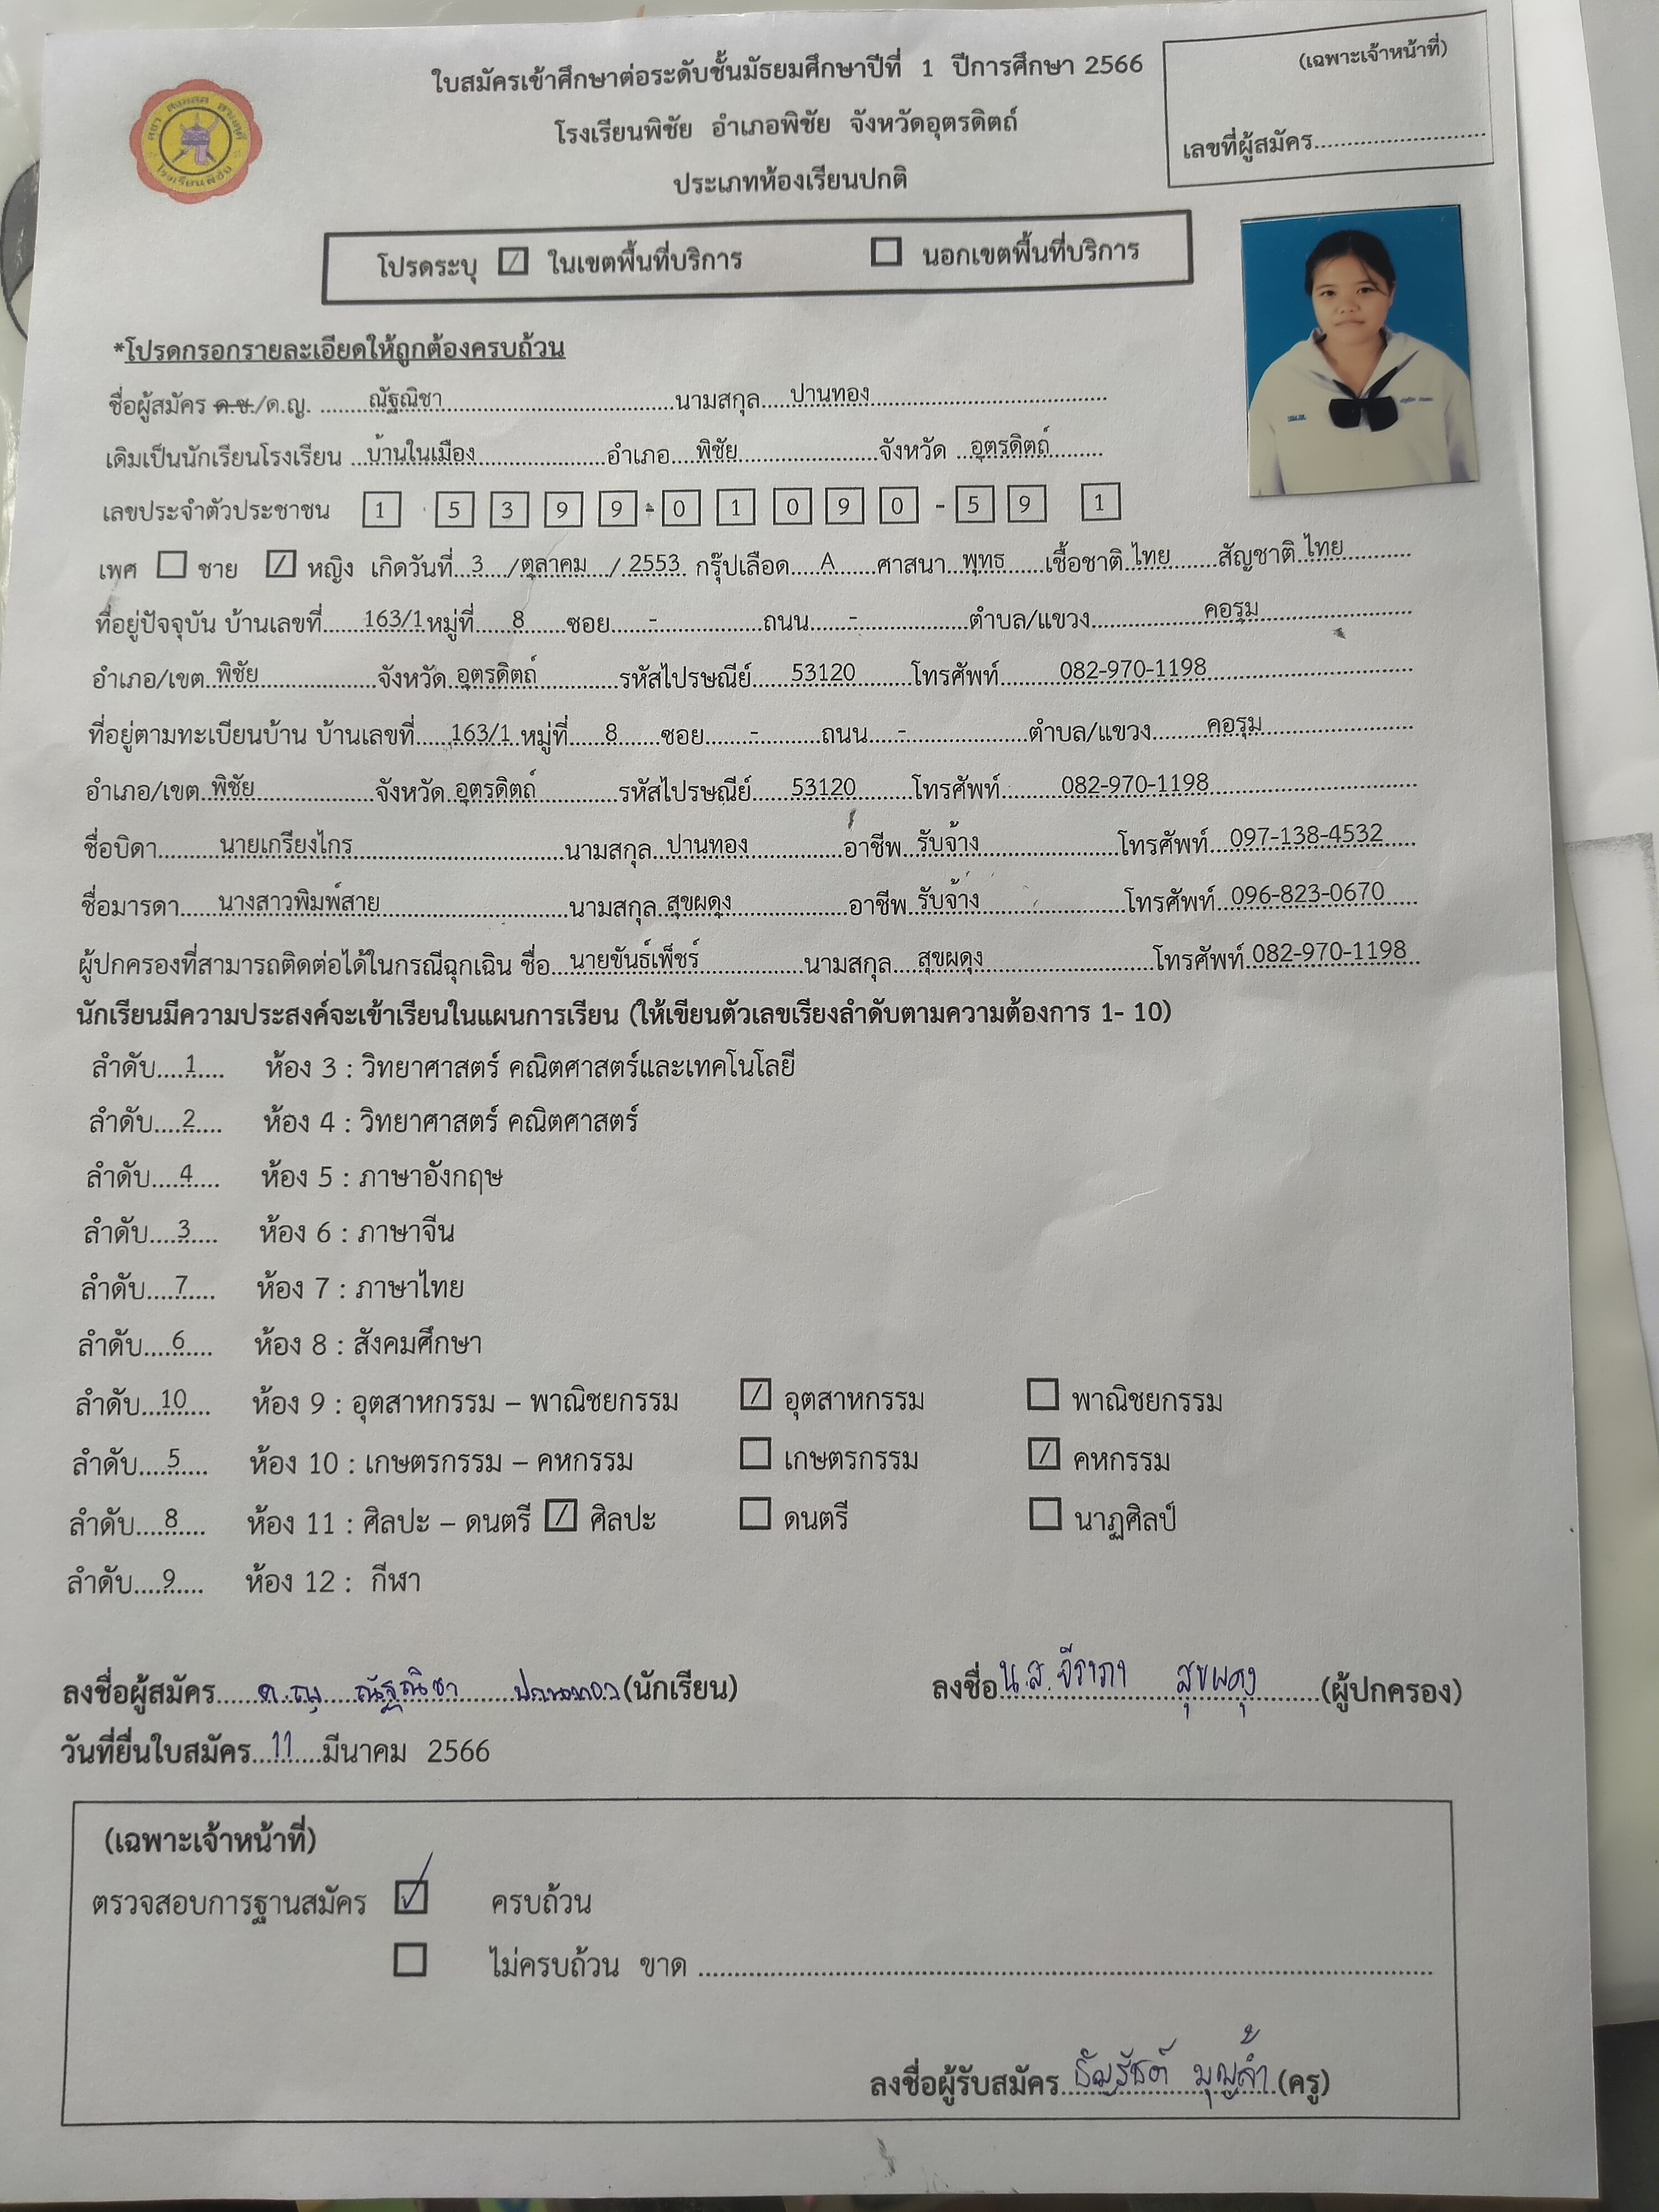 ใบสมัครเข้าศึกษาต่อระดับชั้นมัธยมศึกษาปีที่ 1 ปีการศึกษา 2566
(เฉพาะเจ้าหน้าที่)
โรงเรียนพิชัย อำเภอพิชัย จังหวัดอุตรดิตถ์
เลขที่ผู้สมัคร........................
ประเภทห้องเรียนปกติ
โรงเรียนพิชัย
โปรดระบุ ☑ ในเขตพื้นที่บริการ ☐ นอกเขตพื้นที่บริการ
*โปรดกรอกรายละเอียดให้ถูกต้องครบถ้วน
ชื่อผู้สมัคร ด.ช./ด.ญ. ณัฐณิชา นามสกุล ปานทอง
เดิมเป็นนักเรียนโรงเรียน บ้านในเมือง อำเภอ พิชัย จังหวัด อุตรดิตถ์
เลขประจำตัวประชาชน 1 5 3 9 9 - 0 1 0 9 0 - 5 9 1
เพศ ☐ ชาย ☑ หญิง เกิดวันที่ 3 / ตุลาคม / 2553 กรุ๊ปเลือด A ศาสนา พุทธ เชื้อชาติ ไทย สัญชาติ ไทย
ที่อยู่ปัจจุบัน บ้านเลขที่ 163/1 หมู่ที่ 8 ซอย - ถนน - ตำบล/แขวง คอรุม
อำเภอ/เขต พิชัย จังหวัด อุตรดิตถ์ รหัสไปรษณีย์ 53120 โทรศัพท์ 082-970-1198
ที่อยู่ตามทะเบียนบ้าน บ้านเลขที่ 163/1 หมู่ที่ 8 ซอย - ถนน - ตำบล/แขวง คอรุม
อำเภอ/เขต พิชัย จังหวัด อุตรดิตถ์ รหัสไปรษณีย์ 53120 โทรศัพท์ 082-970-1198
ชื่อบิดา นายเกรียงไกร นามสกุล ปานทอง อาชีพ รับจ้าง โทรศัพท์ 097-138-4532
ชื่อมารดา นางสาวพิมพ์สาย นามสกุล สุขผดุง อาชีพ รับจ้าง โทรศัพท์ 096-823-0670
ผู้ปกครองที่สามารถติดต่อได้ในกรณีฉุกเฉิน ชื่อ นายขันธ์เพ็ชร์ นามสกุล สุขผดุง โทรศัพท์ 082-970-1198
นักเรียนมีความประสงค์จะเข้าเรียนในแผนการเรียน (ให้เขียนตัวเลขเรียงลำดับตามความต้องการ 1- 10)
ลำดับ 1 ห้อง 3 : วิทยาศาสตร์ คณิตศาสตร์และเทคโนโลยี
ลำดับ 2 ห้อง 4 : วิทยาศาสตร์ คณิตศาสตร์
ลำดับ 4 ห้อง 5 : ภาษาอังกฤษ
ลำดับ 3 ห้อง 6 : ภาษาจีน
ลำดับ 7 ห้อง 7 : ภาษาไทย
ลำดับ 6 ห้อง 8 : สังคมศึกษา
ลำดับ 10 ห้อง 9 : อุตสาหกรรม – พาณิชยกรรม ☑ อุตสาหกรรม ☐ พาณิชยกรรม
ลำดับ 5 ห้อง 10 : เกษตรกรรม – คหกรรม ☐ เกษตรกรรม ☑ คหกรรม
ลำดับ 8 ห้อง 11 : ศิลปะ – ดนตรี ☑ ศิลปะ ☐ ดนตรี ☐ นาฏศิลป์
ลำดับ 9 ห้อง 12 : กีฬา
ลงชื่อผู้สมัคร ด.ญ ณัฐณิชา ปานทอง (นักเรียน) ลงชื่อ น.ส.จีราภา สุขผดุง (ผู้ปกครอง)
วันที่ยื่นใบสมัคร 11 มีนาคม 2566
(เฉพาะเจ้าหน้าที่)
ตรวจสอบการฐานสมัคร ☑ ครบถ้วน
☐ ไม่ครบถ้วน ขาด ........................
ลงชื่อผู้รับสมัคร (ครู)